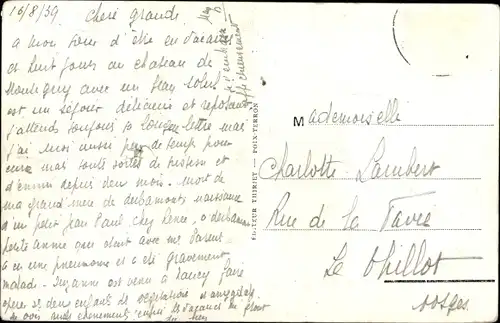 16/8/39 Chère grande
a mon tour d'être en vacances
et huit jours au chateau de
Montaigny avec un beau soleil
est un séjour délicieux et reposant
j'attends toujours ta longue lettre mais
j'ai moi aussi peu de temps pour
mais toute sortes de tristesse et
d'ennuis depuis deux mois. mort de
ma grand'mère de Derbamont, naissance
d'un petit Jean Paul chez Renée, a Derbamont
petite Annie que était avec mes Parents
a eu une pneumonie et a été gravement
malade. Suzanne est venue à Nancy faire
opérer ses deux enfants de végétations et amygdales
tu vois mais les vacances
je t'embrasse
affectueusement
EDITEUR THIRIET — POIX-TERRON
Mademoiselle
Charlotte Lambert
Rue de la Favée
Le Thillot
Vosges